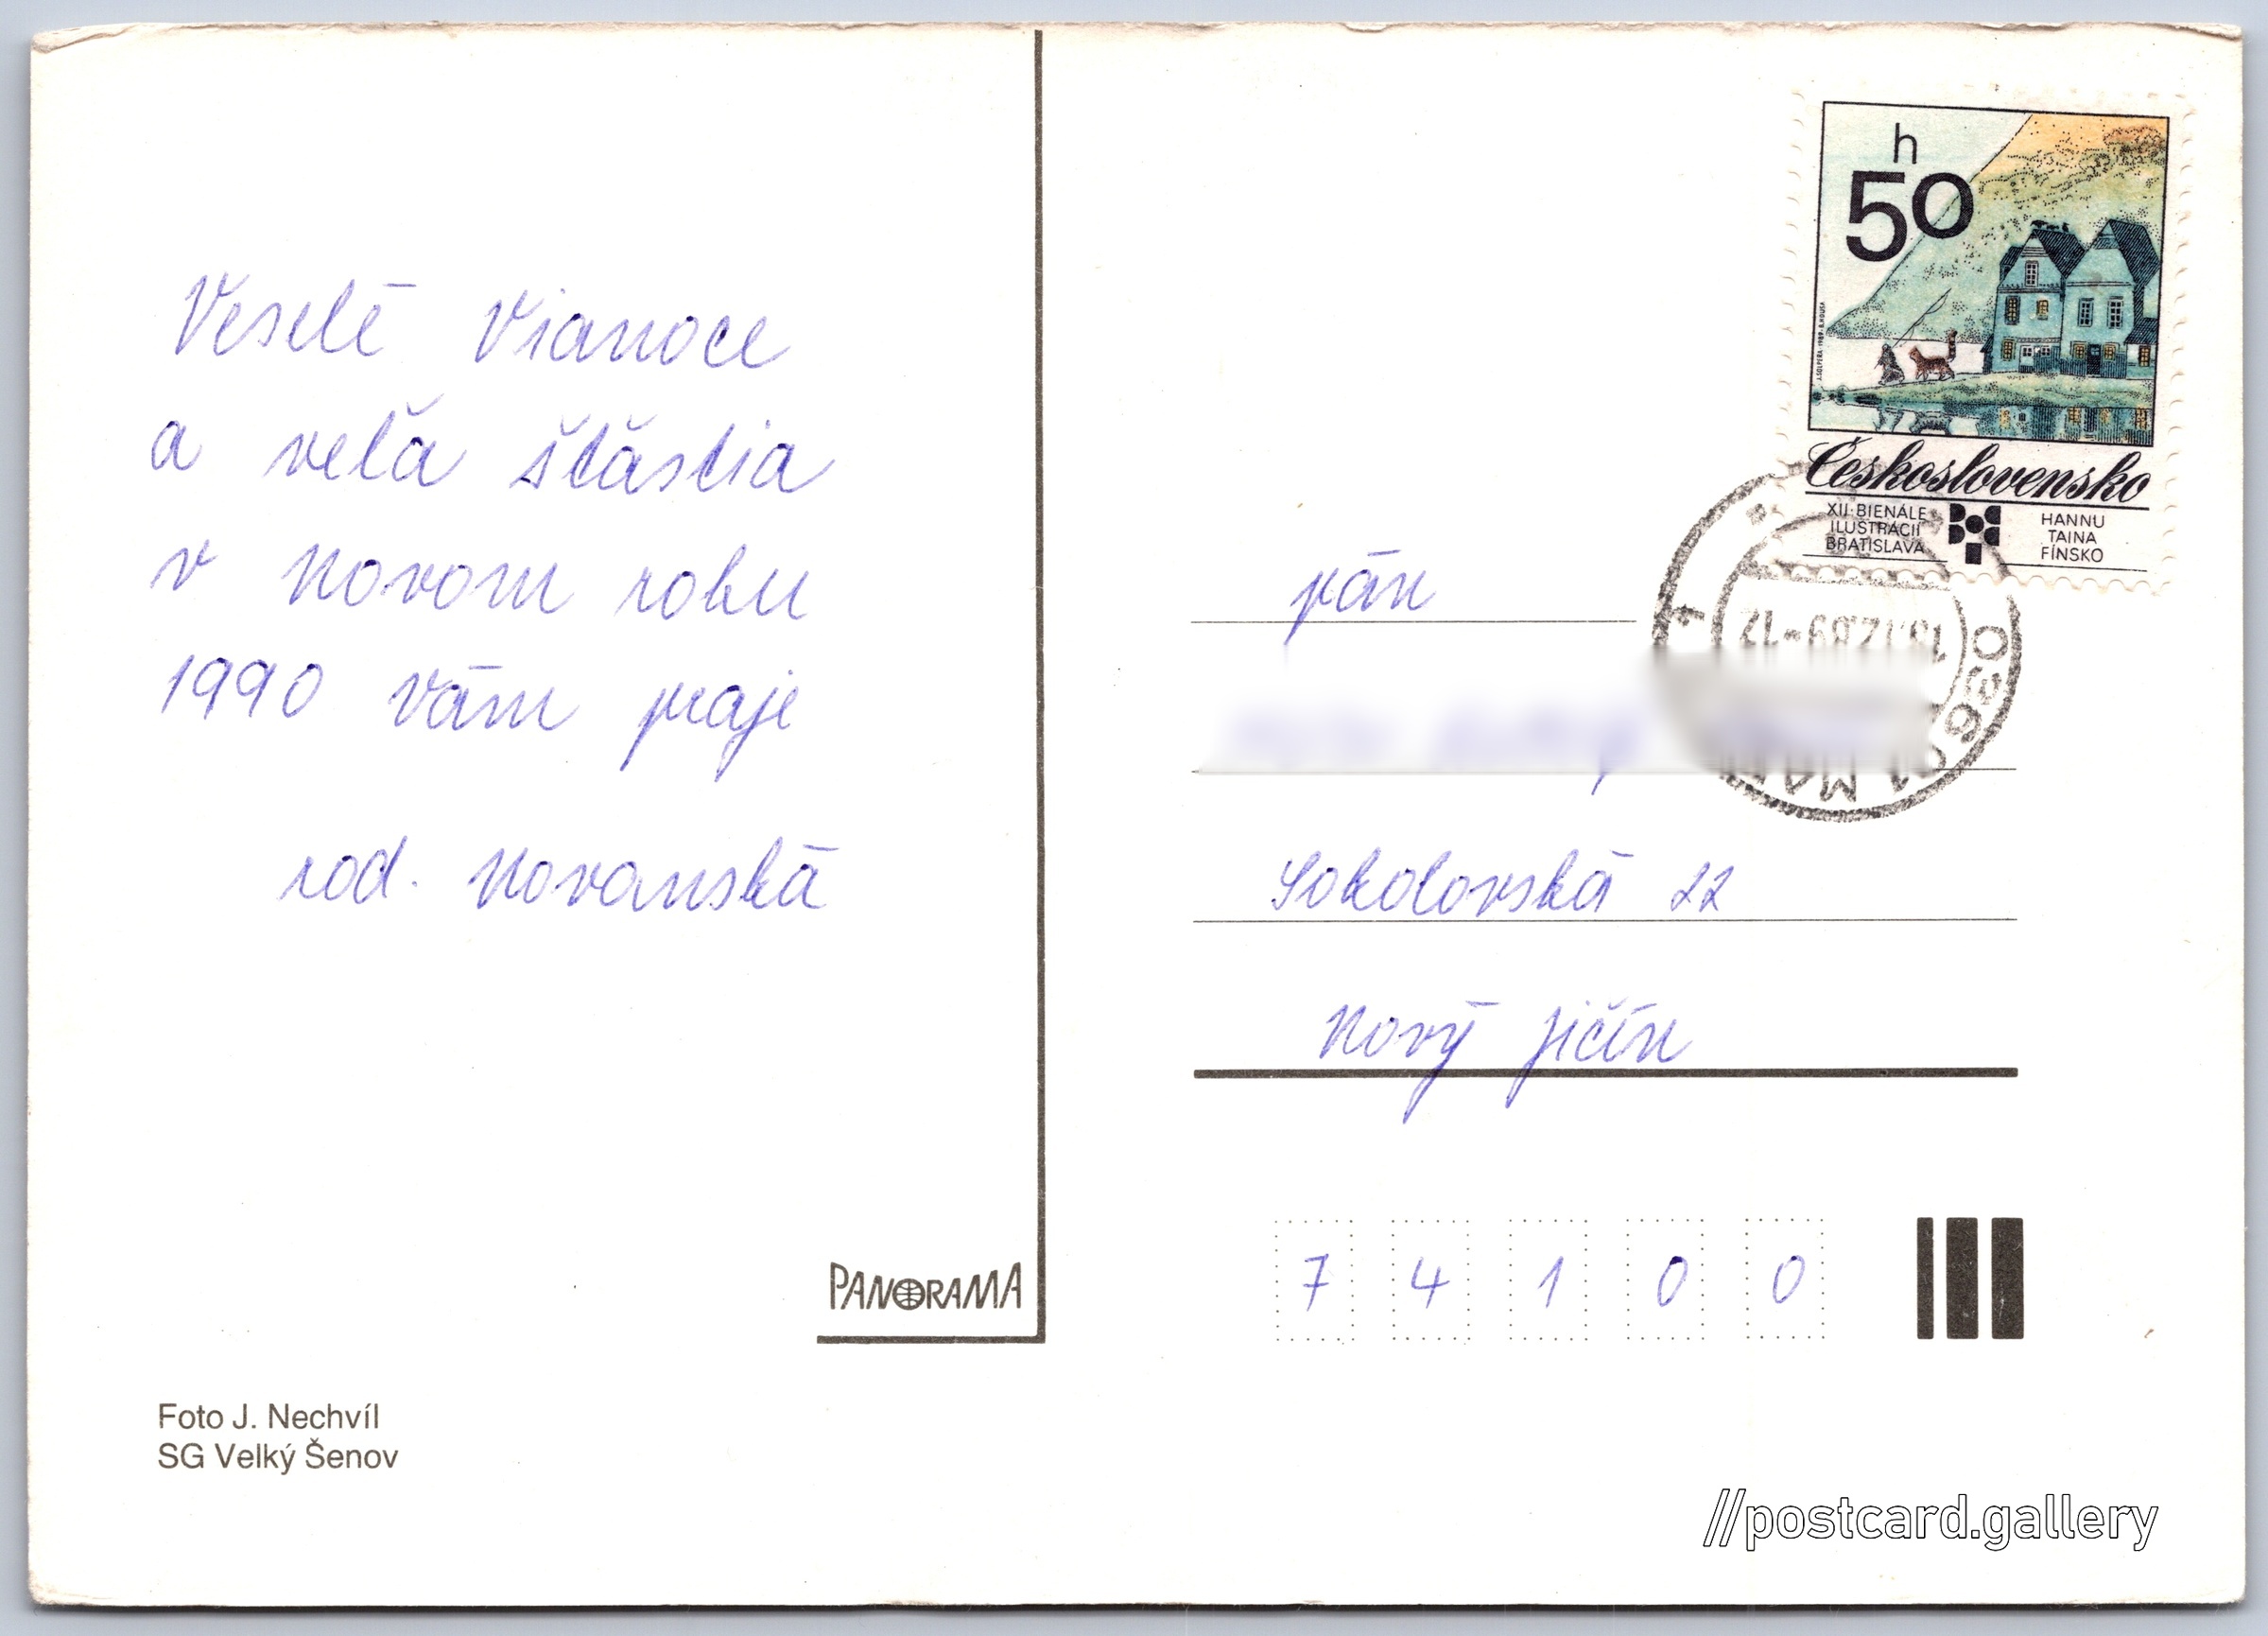 Veselé Vianoce
a veľa šťastia
v Novom roku
1990 vám praje
rod. Novanská
PANORAMA
Foto J. Nechvíl
SG Velký Šenov
h
50
Československo
XII. BIENÁLE
ILUSTRÁCIÍ
BRATISLAVA
HANNU
TAINA
FÍNSKO
pán
Sokolovská 22
Nový Jičín
7 4 1 0 0
//postcard.gallery